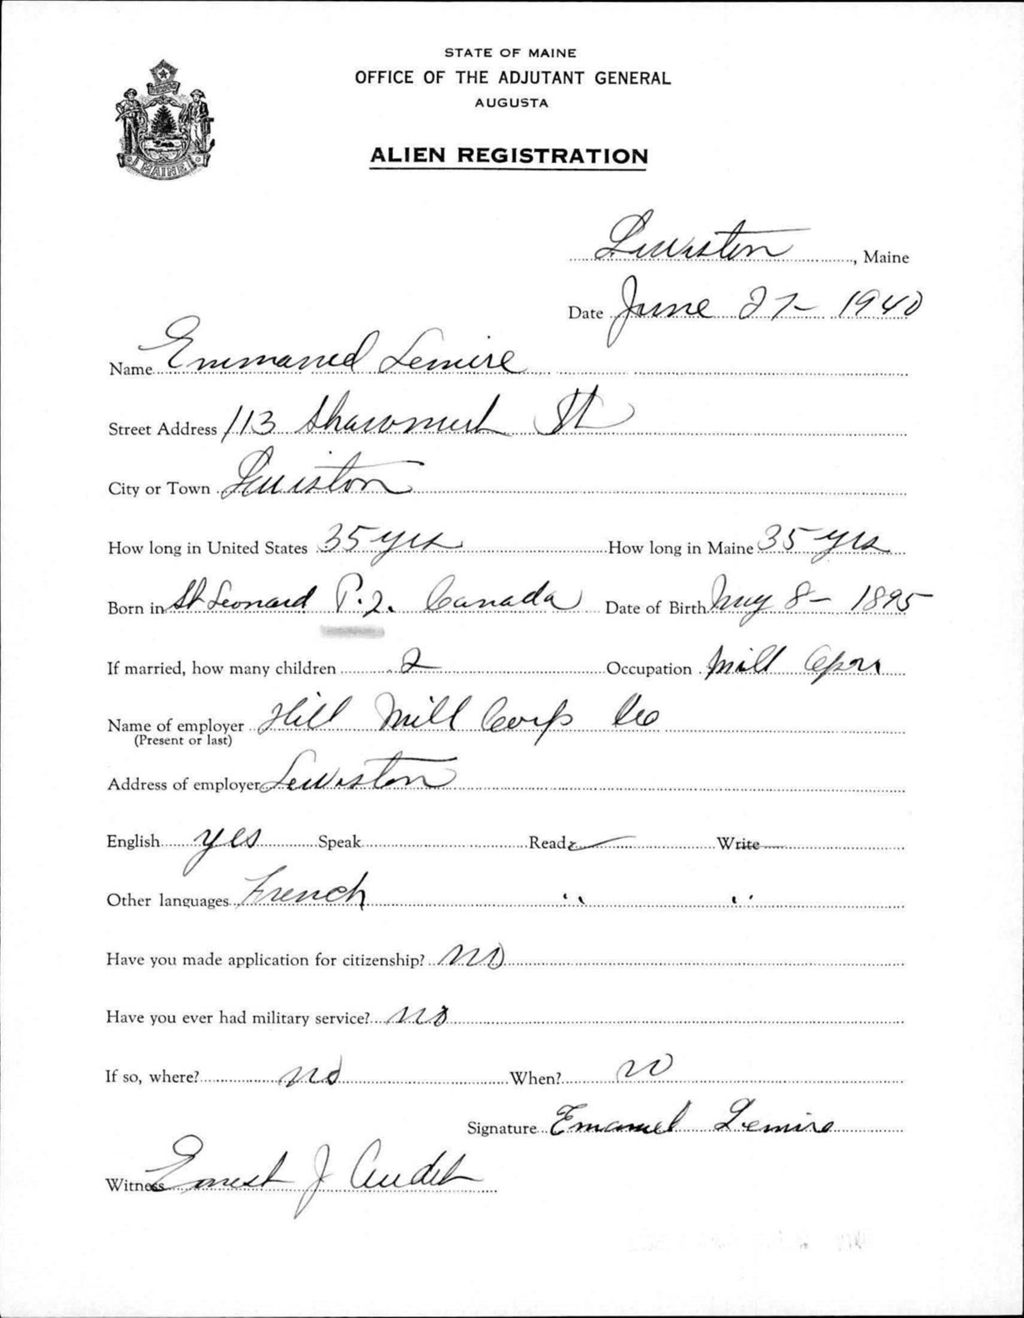 STATE OF MAINE
OFFICE OF THE ADJUTANT GENERAL
AUGUSTA
ALIEN REGISTRATION
MAINE
Lewiston, Maine
Date June 27 - 1940
Name Emmanuel Lemire
Street Address 113 Shawmut St
City or Town Lewiston
How long in United States 35 yrs How long in Maine 35 yrs
Born in St Leonard P.Q. Canada Date of Birth May 8 - 1895
If married, how many children 2 Occupation Mill Oper
Name of employer Hill Mill Corp
(Present or last)
Address of employer Lewiston
English yes Speak Read ✓ Write —
Other languages French " "
Have you made application for citizenship? no
Have you ever had military service? no
If so, where? no When? no
Signature Emanuel Lemire
Witness Ernest J Audet